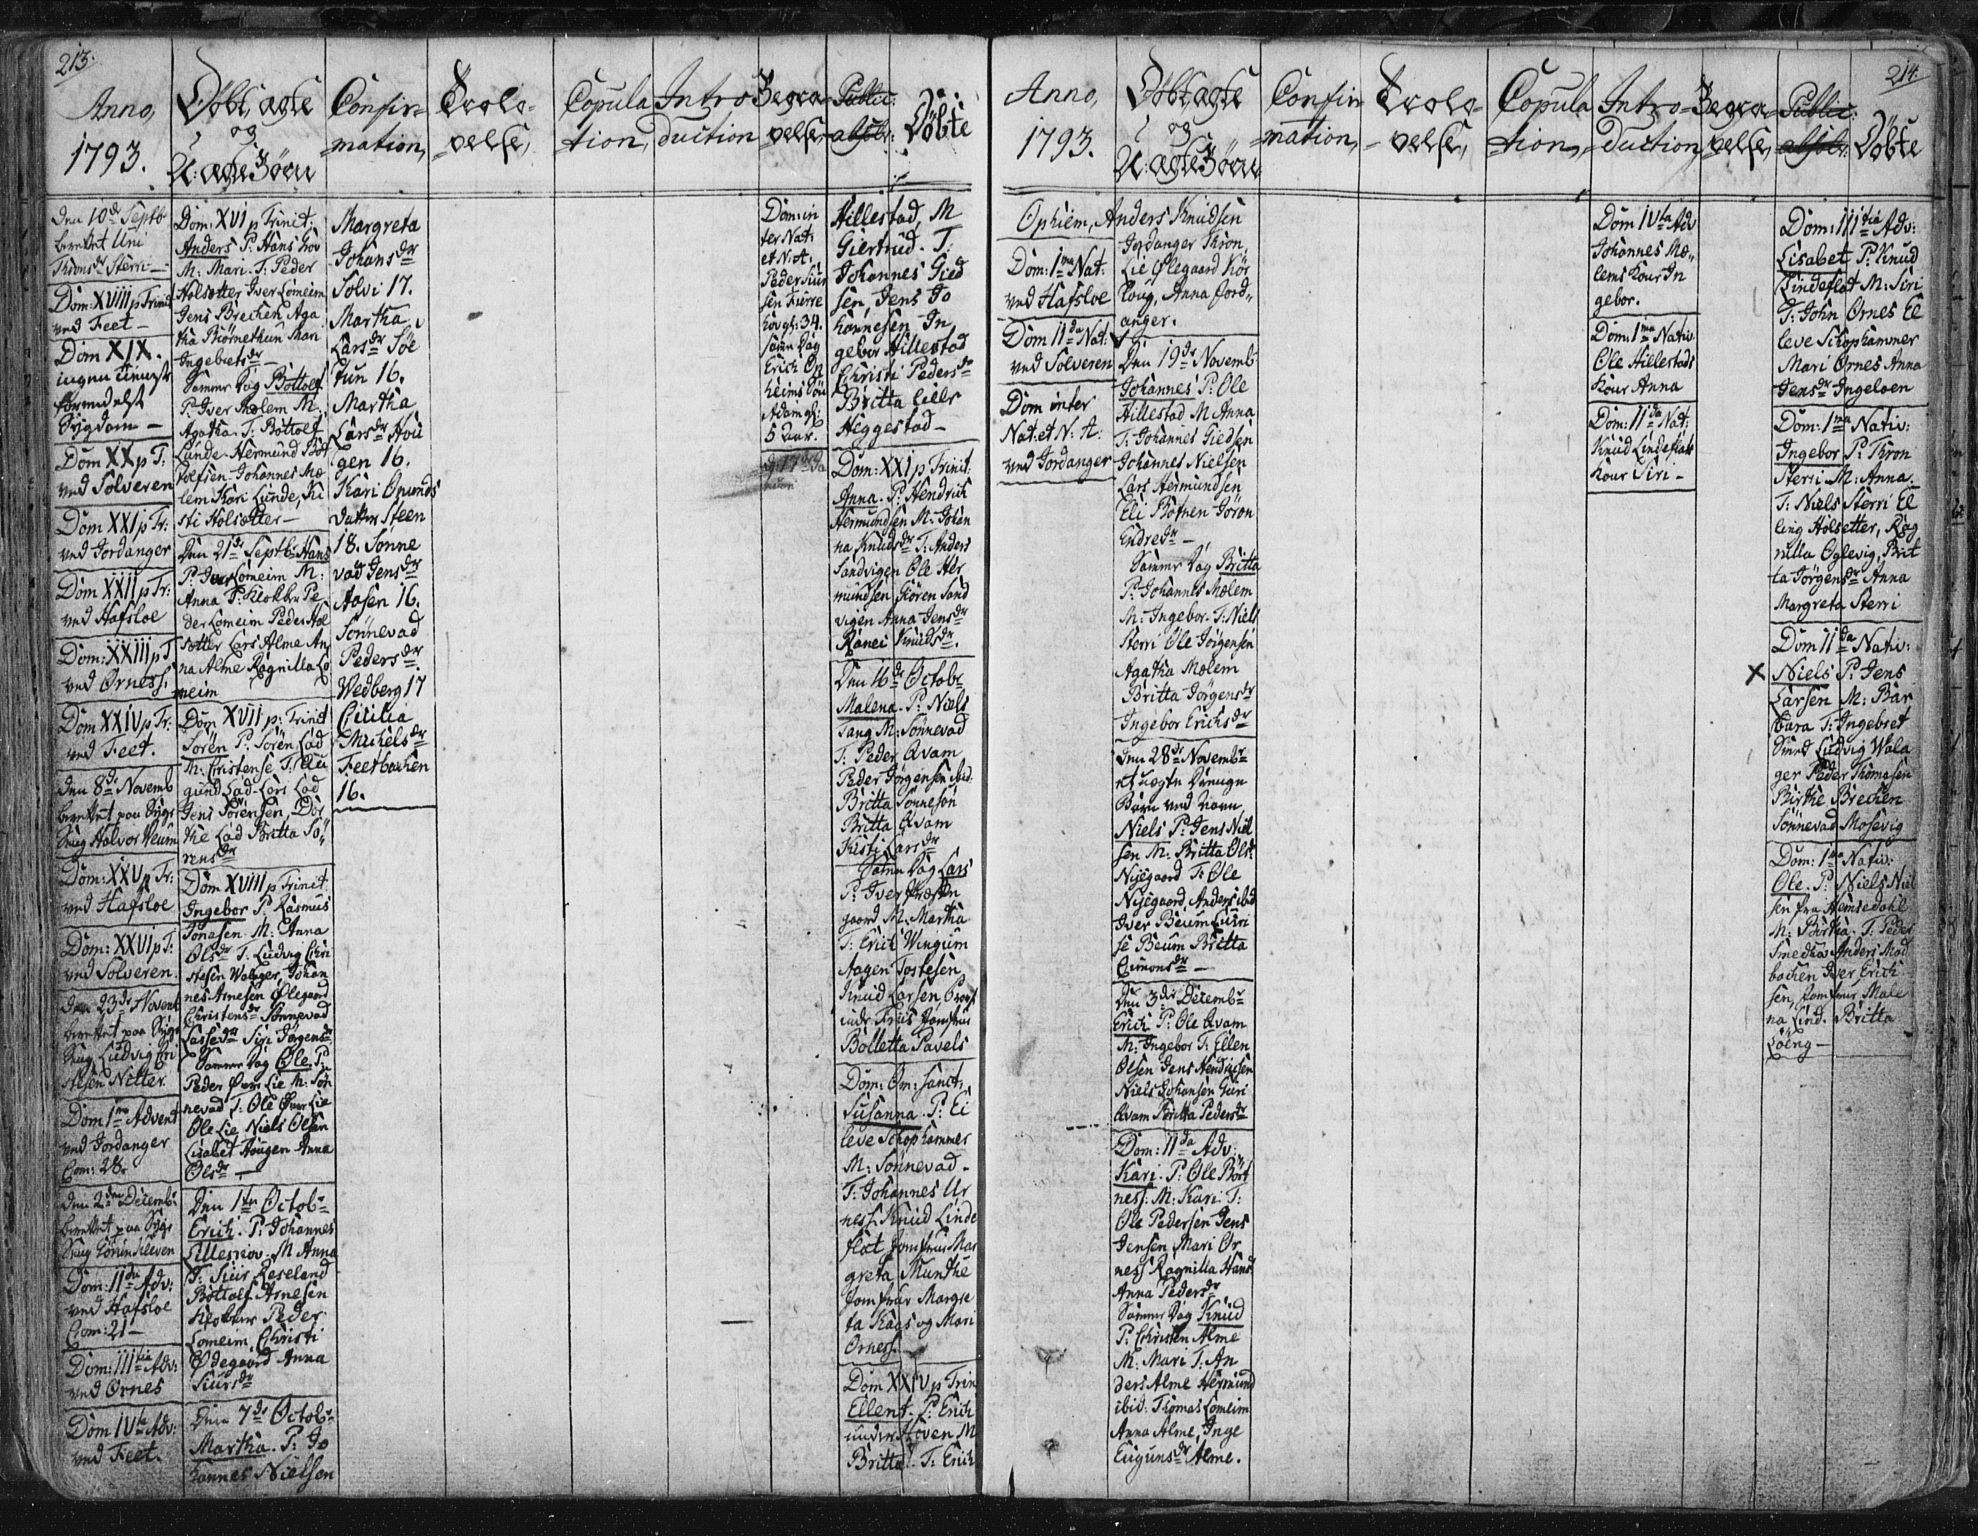 213.
Anno,
1793.
Døbt, ægte
og
U: ægte Børn
Confir=
mation,
Trolo=
velse,
Copula
tion,
Intro
duction
Begra
velse,
Public:
absol:
Døbte
Den 10de Septb
berettet Uni
Thronsdr Sterri
Dom: XVIII p Trinit
ved Feet -
Dom XIX.
ingen tieneste
formedelst
Sygdom -
Dom XX p T:
ved Solveren
Dom XXI p Tr:
ved Jordanger
Dom XXII p Tr:
ved Hafsloe
Dom: XXIII p T
ved Ørness.
Dom XXIV p Tr:
ved Feet.
Den 8de Novemb
berettet paa Syge
Seng Halvor Veum
Dom: XXV p Tr:
ved Hafsloe
Dom: XXVI p T:
ved Solveren
Den 23de Novemb
berettet paa Syge
Seng Ludvig Cri
stesen Nitter.
Dom 1ma Advent
ved Jordanger
Com: 28.
Den 2den Decemb:
berettet paa Syge
Seng
Dom: IIda Adv:
ved Hafsloe
Com: 21 -
Dom: IIItia Adv:
ved Ørnes
Dom IVta Adv:
ved Feet.
Dom: XVI p Trinit:
Anders P: Hans Hov
M: Mari. T: Peder
Holsetter Iver Lomeim
Jens Brechen Aga
tha Thornethun Mari
Ingebretsdr -
Samme Dag Bottolf
P: Iver Mølem M.
Agatha. T: Bottolf
Lunde Hermund Bot
tolfsen Johannes Mø
lem Kari Lunde, Ki
sti Holsetter -
Den 21de Septbr Hans
P: Iver Lomeim M:
Anna T: Klokker Pe
der Lomeim Peder Hol
sætter Lars Alme An
na Alme Ragnilla Lo
meim
Dom XVII p: Trinit
Sören P: Sören Lad
M: Christense T: Au
gund Lad Lars Lad
Jens Sörensen, Dor
the Lad Britta Sö,,
rensdr
Dom XVIII p Trinit
Ingebor P. Rasmus
Jonasen M: Anna
Olsdr T. Ludvig Chri
stesen Walager, Johan
nes Arnesen Ølegaard
Christensdr Sonnevad
Lassedr Siri Jørgensdr
Samme Dag Ole. P:
Peder Øvre Lie M: Søn
nevad T: Ole Øvre Lie
Ole Lie Niels Olsen
Lisabet Hougen Anna
Olsdr -
Den 1ste Octobr
Erich. P: Johannes
M Anna
T: Siur Reseland
Bottolf Arnesen
Klokker Peder
Lomeim, Christi
Ødegaard Anna
Siursdr
Den 7de Octobr
Martha. P: Jo
hannes Nielsen
Margreta
Johansdr
Solvi 17.
Martha
Larsdr Söe
tun 16.
Martha
Larsdr Hou
gen 16.
Kari Omunds
datter Steen
18. Sonne
vad Jensdr
Aasen 16.
Sönnevad
Pedersdr
Wedberg 17
Cicilia
Michelsdr
Feetbachen
16.
Dom: in
ter Nat:
et N: A:
Peder Siur
sen Furre
hov gl: 34.
Samme Dag
Erich Op
heims Søn
Adam gl:
5 Aar.
Hillestad, M
Giertrud. T:
Johannes Gied
sen Jens Jo
hannesen In
gebor Hillestad
Christi Pedersdr
Britta Lille
Heggestad -
Dom: XXI p Trinit:
Anna. P: Hendrich
Hermundsen M: Johan
na Knudsdr T: Anders
Sandvigen Ole Her
mundsen Sören Sand
vigen Anna Jensdr
Ranei Knudsdr.
Den 16de Octobr
Malena. P: Niels
Tang M: Sönnevad
T: Peder Qvam
Peder Jørgensen ibid.
Britta Sonneson
Britta Qvam
Kisti Larsdr
Samme Dag Lars
P: Iver Præsten
gaard M: Martha
T: Erich Wingum
Aagen Tostesen
Knud Larsen Prov
inde Friis Jomfrue
Bolletta Pavels
Dom: Om: Sanct:
Susanna. P: Ei
leve Schophammer
M: Sönnevad -
T: Johannes Ur
ness. Knud Linde
flat, Jomfrue Mar
greta Munthe
Jomfrue Margre
ta Kaas og Mari
Ørness.
Dom XXIV p Trin
Ellent. P: Erich
under Hoven M
Britta T: Erich
214.
Anno,
1793.
Døbt, ægte
og
U: ægte Børn
Confir
mation,
Trolo
velse,
Copula
tion,
Intro=
duction
Begra
velse,
Public:
absol:
Døbte
Ophiem, Anders Knudsen
Dom: 1ma Nat:
ved Hafsloe
Dom IIda Nat:
ved Solveren
Dom inter
Nat: et N: A:
ved Jordanger
Jordanger Thron
Lie Ølegaard Kör
houg, Anna Jord,,
anger.
Den 19de Novemb
Johannes P: Ole
Hillestad M Anna
T: Johannes Giedsen
Johannes Nielsen
Lars Hermundsen
Eli Bothen Joron
Endredr -
Samme Dag Britta
P: Johannes Mølem
M: Ingebor. T: Niels
Sterri Ole Jörgensen
Agatha Mølem
Britta Jörgensdr
Ingebor Erichsdr
Den 28de Novembr
et uægte Drenge
Barn ved Navn
Niels P: Jens Niel
sen M: Britta Olsdr
Nyegaard T: Ole
Nyegaard, Anders ibid
Iver Beum Guri
se Beum Britta
Simonsdr -
Den 3die Decembr
Erich P: Ole Qvam
M: Ingebor T: Ellen
Olsen Jens Hendrichsen
Niels Johansen Guri
Qvam Britta Pedersdr
Dom: IIda Adv:
Kari. P: Ole Bort
ness: M: Kari T:
Ole Pedersen Jens
Jensen Mari Or
ness Ragnilla Hans
Anna Pedersdr
Samme Dag Knud
P: Christen Alme
M: Mari T: An
ders Alme Hermund
ibid: Thomas Lomeim
Anna Alme, Inge
Eugunsdr Alme.
Dom IVta Adv
Johannes Mø,,
lems Kone In
gebor.
Dom: 1ma Nativ:
Ole Hillestads
Kone Anna
Dom: IIda Nat:
Knud Lindeflats
Kone Siri -
Dom: IIItia Adv:
Lisabet P: Knud
Lindeflat M: Siri
T: John Ørnes Ei
leve Schophammer
Mari Ørnes Anna
Jensdr Ingeloen
Dom: 1ma Nativ:
Ingebor P: Thron
Sterri M: Anna
T: Niels Sterri El
ling Holsetter, Rag
nilla Oglevig, Brit
ta Jörgensdr Anna
Margreta Sterri
Dom IIda Nativ:
X Niels P: Jens
Larsen M: Bar
bara T: Ingebret
Sund Ludvig Wala
ger Peder Thomasen
Birthe Brechen
Sönnevad Mosevig
Dom: 1ma Nativ:
Ole. P: Niels Niel
sen fra Hemsedahl
M: Birtha. T: Peder
Smedhas Anders Mod
bachen Iver Erich
sen, Jomfrue Male
na Lind. Britta
Löeng -